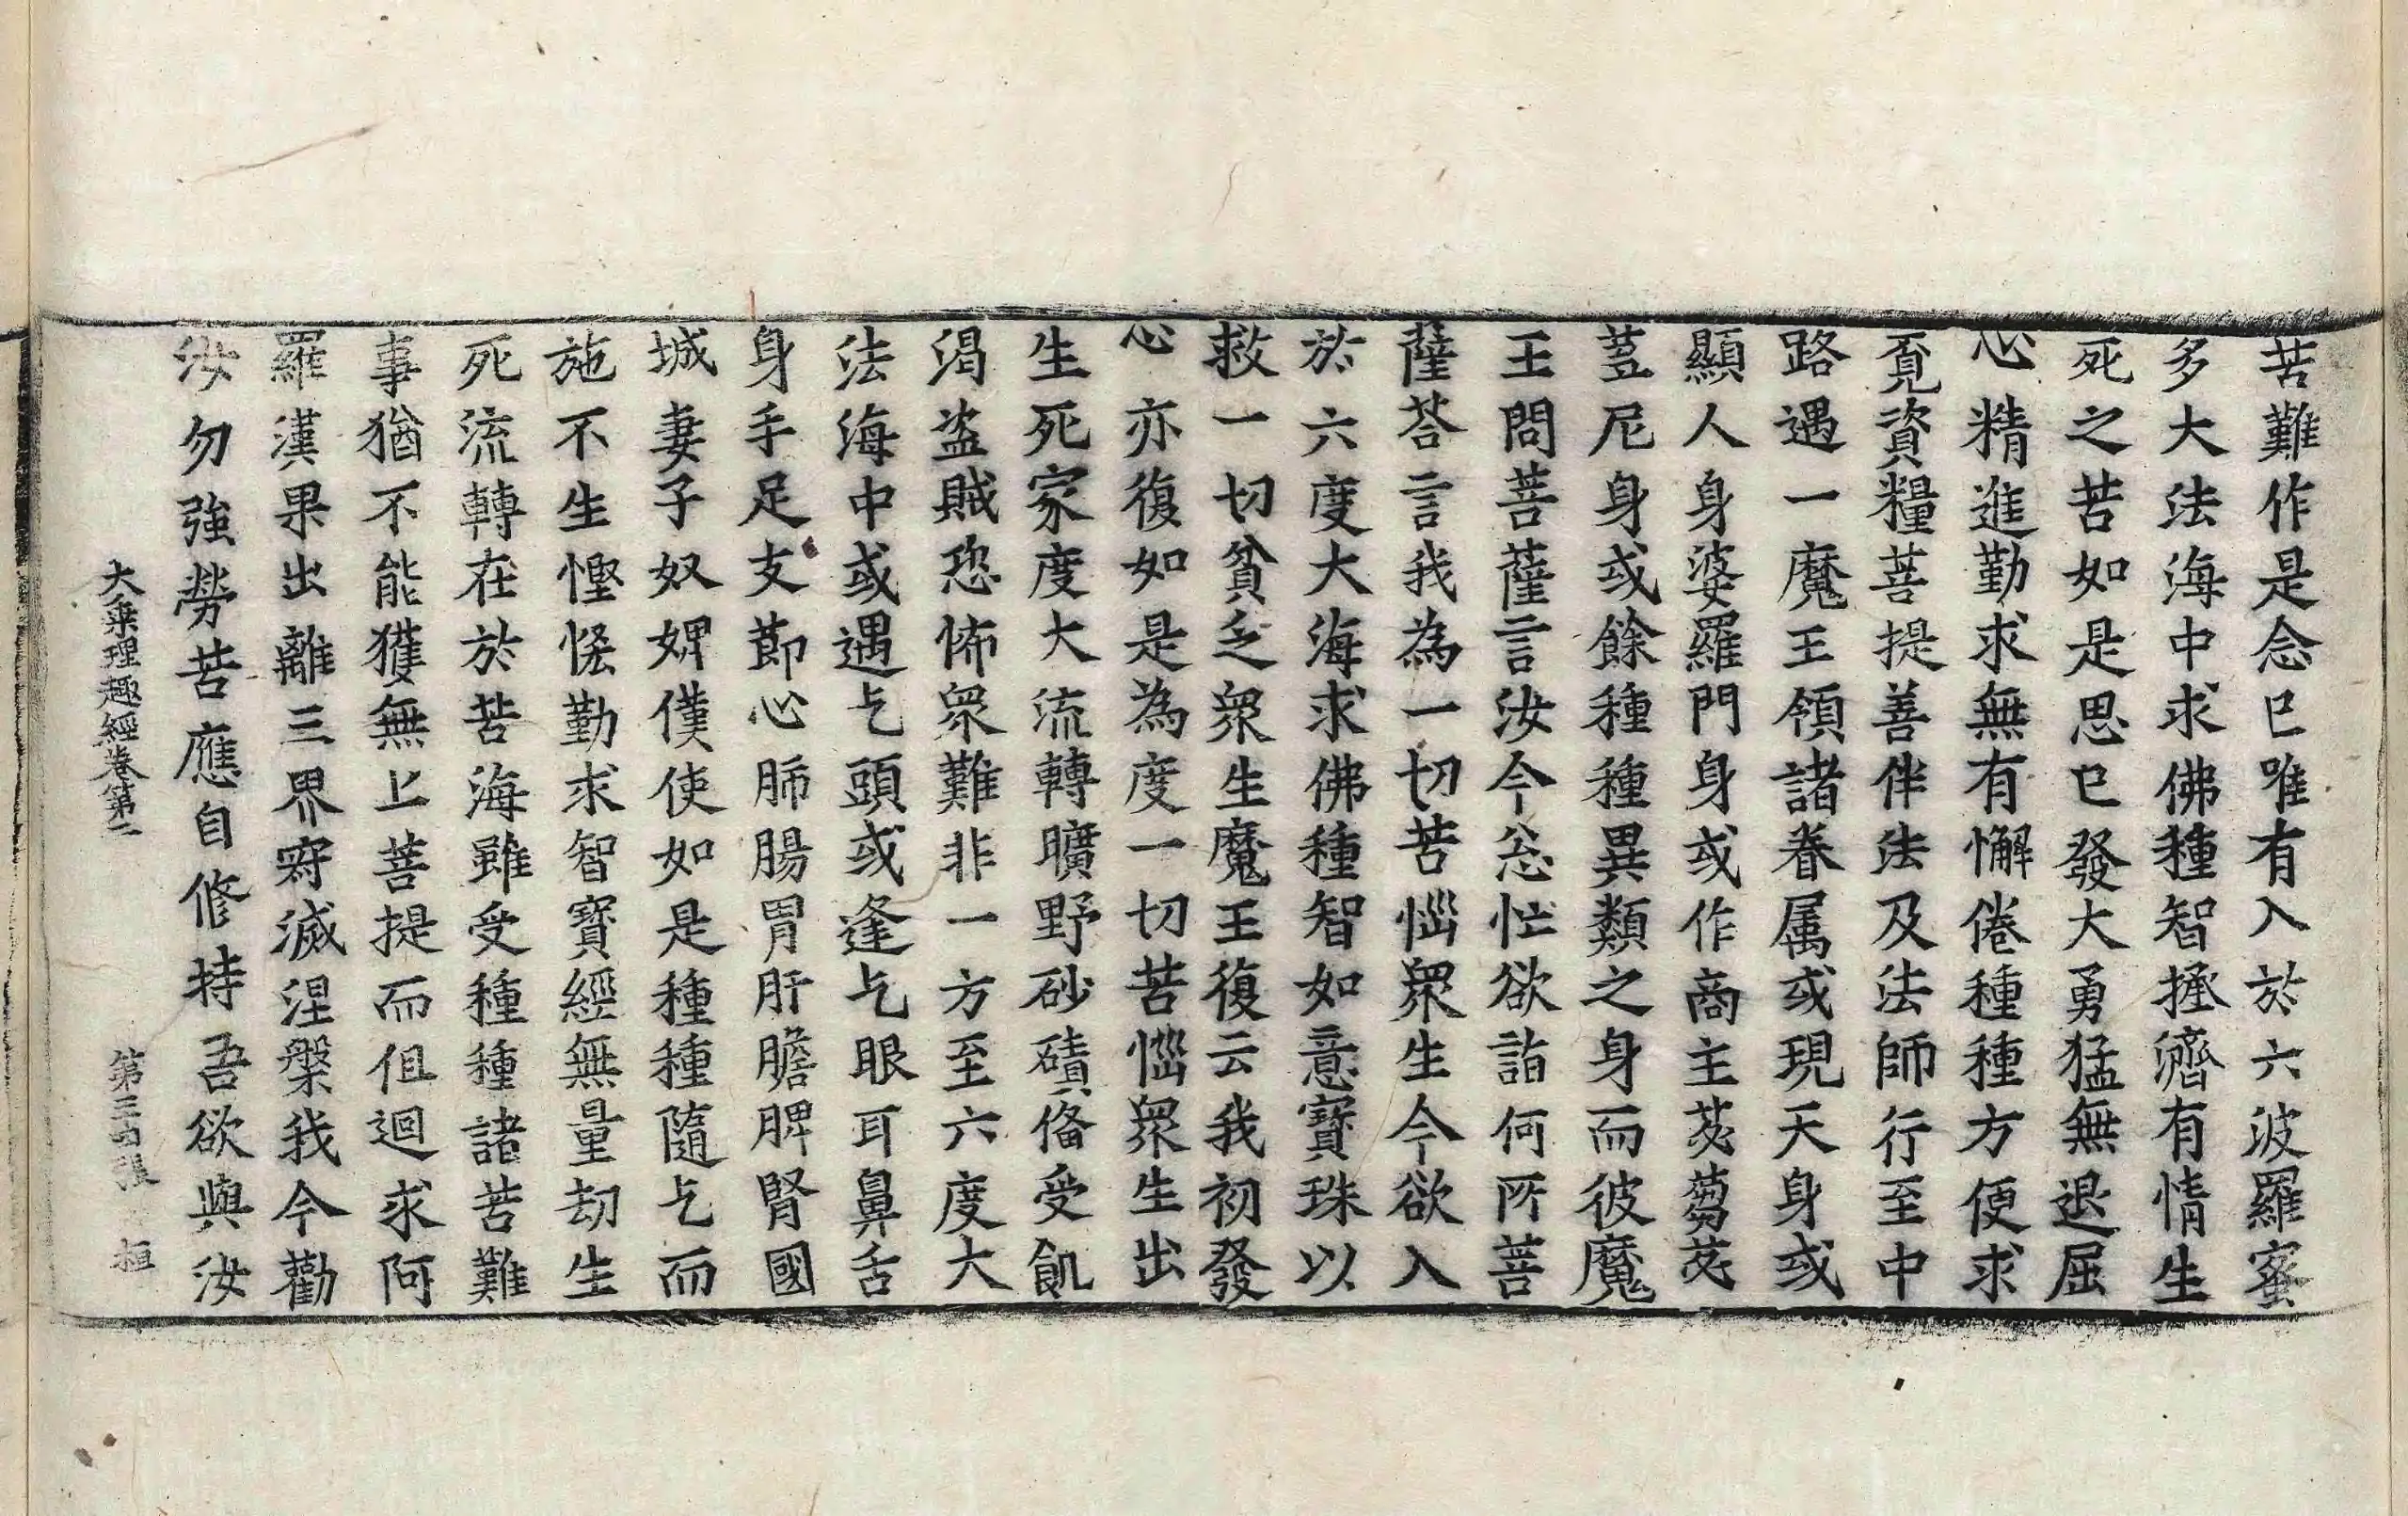 苦難作是念已唯有入於六波羅蜜
多大法海中求佛種智拯濟有情生
死之苦如是思已發大勇猛無退屈
心精進勤求無有懈倦種種方便求
覔資糧菩提善伴法及法師行至中
路遇一魔王領諸眷属或現天身或
顯人身婆羅門身或作商主苾蒭苾
蒭尼身或餘種種異類之身而彼魔
王問菩薩言汝今忩忙欲詣何所菩
薩荅言我為一切苦惱衆生今欲入
於六度大海求佛種智如意寶珠以
救一切貧乏衆生魔王復云我初發
心亦復如是為度一切苦惱衆生出
生死家度大流轉曠野砂磧俻受飢
渴盗賊恐怖衆難非一方至六度大
法海中或遇乞頭或逢乞眼耳鼻舌
身手足支莭心肺腸胃肝膽脾腎國
城妻子奴婢僕使如是種種隨乞而
施不生慳悋勤求智寶經無量劫生
死流轉在於苦海雖受種種諸苦難
事猶不能獲無上菩提而伹迴求阿
羅漢果出離三界寂滅涅槃我今勸
汝勿強勞苦應自修持吾欲與汝
大乗理趣經卷第二 第三 張 桓